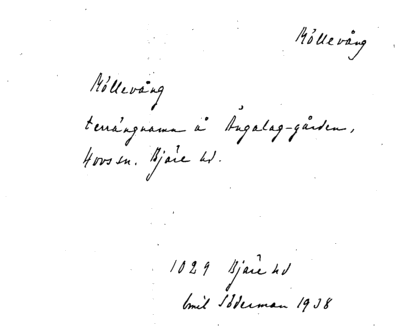 Möllevång
Möllevång
terrängnamn å Ängalag-gården,
Hovs sn. Bjäre hd.
1029 Bjäre hd
Emil Söderman 1938